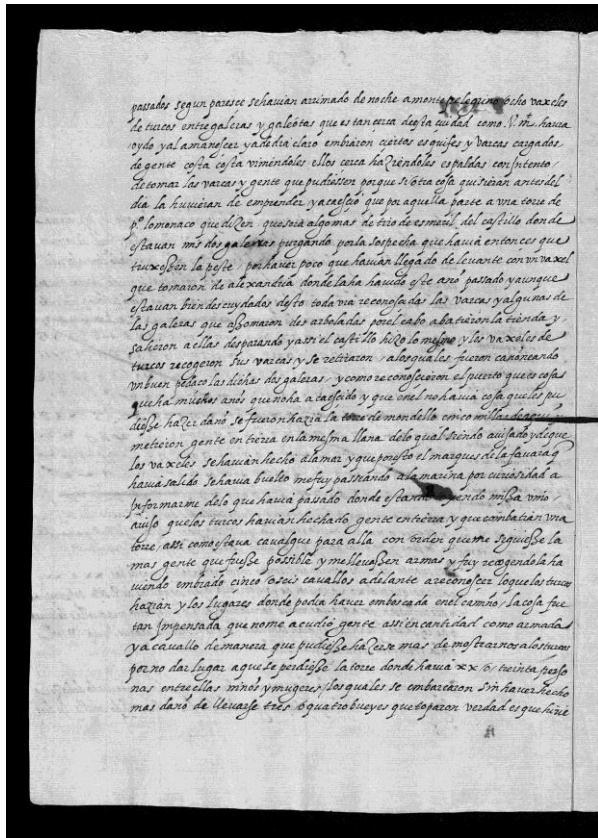 passados segun paresce se havian arrimado de noche a monte pelegrino ocho vaxeles
de turcos entre galeras y galeotas que estan cerca desta ciudad como V. m. havra
oydo y al amanescer ya de dia claro embiaron ciertos esquifes y varcas cargados
de gente costa costa viniendoles ellos cerca haziendoles espaldas con intento
de tomar las varcas y gente que pudiessen porque si otra cosa quisieran antes del
dia la huvieran de emprender y acaescio que por aquella parte a una torre de
p.o lomonaco que dizen que sera algo mas de tiro de esmeril del castillo donde
estavan mis dos galeras purgando por la sospecha que havia entonces que
truxessen la peste por haver poco que havian llegado de levante con un vaxel
que tomaron de alexandria donde la ha havido este año passado y aunque
estavan bien descuydados desto todavia reconoscidas las varcas y algunas de
las galeras que assomaron desarboladas por el cabo abatieron la tienda y
salieron a ellas disparando y assi el castillo hizo lo mesmo y los vaxeles de
turcos recogeron sus varcas y se retiraron a los quales fueron cañoneando
un buen pedaço las dichas dos galeras / y como reconoscieron el puerto que es cosa
que ha muchos años que no ha acaescido y que en el no havia cosa que les pu
diesse hazer daño se fueron hazia la torre de mondello cinco millas de aqui y
metieron gente en tierra en la mesma llana de lo qual siendo avisado y de que
los vaxeles se havian hecho a la mar y que por esto el marques de la favara q
havia salido se havia buelto me fuy passeando a la marina por curiosidad a
informarme de lo que havia passado donde estando oyendo missa vino
aviso que los turcos havian hechado gente en tierra y que combatian una
torre, assi como estava cavalgue para alla con orden que me siguiesse la
mas gente que fuesse possible y me llevassen armas y fuy recogendola ha
viendo embiado cinco o seis cavallos adelante a reconoscer lo que los turcos
hazian y los lugares donde podia haver emboscada en el camino / la cosa fue
tan impensada que no me acudio gente assi en cantidad como armada
y a cavallo de manera que pudiesse hazerse mas de mostrarnos a los turcos
por no dar lugar a que se perdiesse la torre donde havia xx o treinta perso
nas entre ellas niños y mugeres / los quales se embarcaron sin haver hecho
mas daño de llevarse tres o quatro bueyes que toparon verdad es que hirie